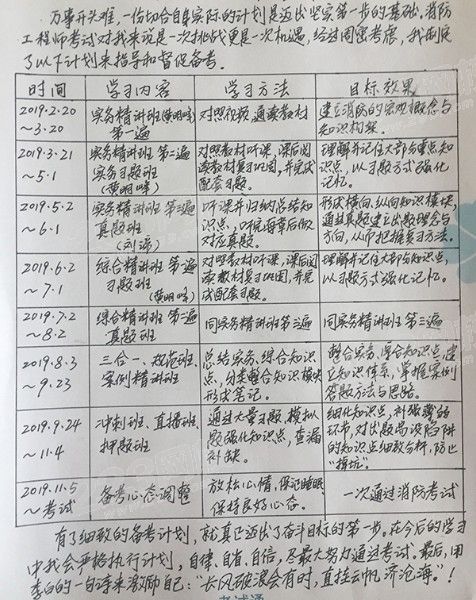 万事开头难,一份切合自身实际的计划是迈出坚实第一步的基础,消防
工程师考试对我来说是一次挑战更是一次机遇,经过周密考虑,我制定
了以下计划来指导和督促备考。
时间 学习内容 学习方法 目标效果
2019.2.20 ~3.20
实务精讲班(黄明峰)
第一遍
对照视频 通读教材
建立消防的宏观概念与
知识构架。
2019.3.21 ~5.1
实务精讲班 第二遍
实务习题班
(黄明峰)
对照教材听课,课后阅
读教材复习巩固,并完成
配套习题。
理解并记住大部分重点知
识点,以习题方式强化
记忆。
2019.5.2 ~6.1
实务精讲班 第三遍
真题班
听课并归纳总结知
识点,听完每章后做
对应真题。
形成横向,纵向知识模块,
通过真题建立出题理念与
方向,从而把握复习方法。
2019.6.2 ~7.1
综合精讲班 第一遍
习题班
(黄明峰)
对照教材听课,课后阅
读教材复习巩固,并完
成配套习题。
理解并记住大部分知识点,
以习题方式强化记忆。
2019.7.2 ~8.2
综合精讲班 第二遍
真题班
同实务精讲班第三遍
同实务精讲班 第三遍
2019.8.3 ~9.23
三合一、规范班、
案例精讲班
总结实务、综合知识
点,分类整合知识模块
形成笔记。
整合实务、综合知识点,建
立知识体系,掌握案例
答题方法与思路。
2019.9.24 ~11.4
冲刺班、直播班、
押题班
通过大量习题、模拟
题强化知识点,查漏
补缺。
细化知识点,补强薄弱
环节,对出题易设陷阱
的知识点细致分析,防止
"掉坑"。
2019.11.5 ~考试
备考心态调整
放松心情,保证睡眠,
保持良好心态。
一次通过消防考试
有了细致的备考计划,就真正迈出了奋斗目标的第一步。在今后的学习
中我会严格执行计划,自律、自省、自信,尽最大努力通过考试。最后,用
李白的一句诗来激励自己:"长风破浪会有时,直挂云帆济沧海。"!